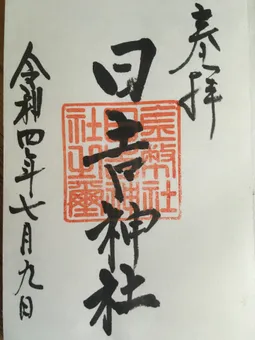 奉拝
日吉神社
令和四年七月九日